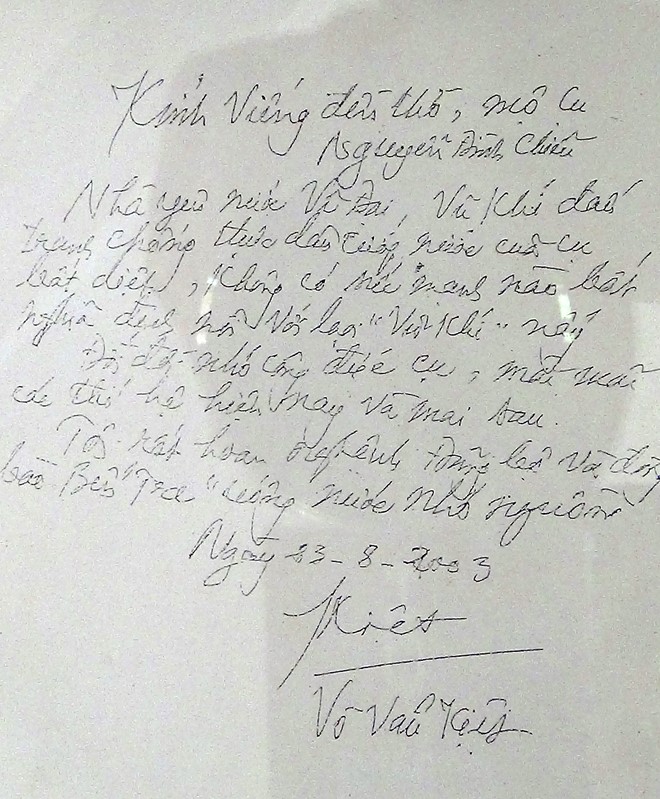 Kính viếng đền thờ, mộ cụ
Nguyễn Đình Chiểu
Nhà yêu nước Vĩ Đại, Vũ Khí đấu
tranh chống thực dân cướp nước của cụ
bất diệt, không có sức mạnh nào bất
nghĩa địch nổi với loại "Vũ Khí" này
Đời đời nhớ công đức cụ, mãi mãi
các thế hệ hiện nay và mai sau.
Tôi rất hoan nghênh Đảng bộ và đồng
bào Bến Tre "uống nước nhớ nguồn
Ngày 23-8-2003
Kiệt
Võ Văn Kiệt